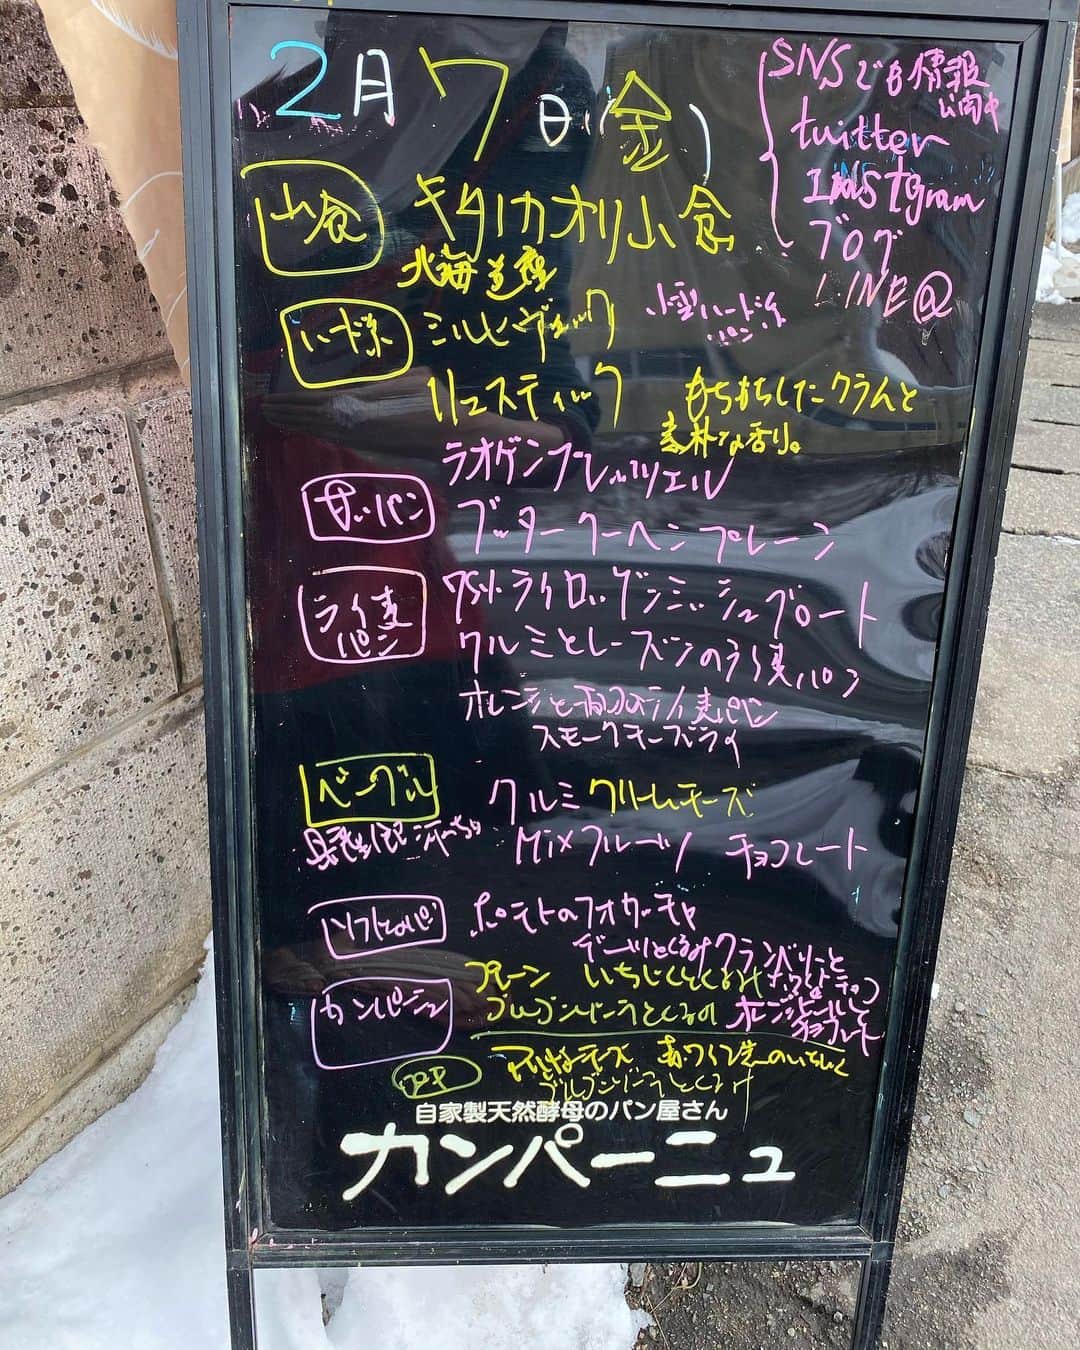 2月7日(金)
SNSでも情報
公開中
twitter
Instagram
ブログ
LINE@
山食
キタノカオリ山食
北海道産
ハード系
ミルヒヴェック
小型ハード系
パン
リュスティック
もちもちしたクラムと
素朴な香り。
ラオゲンプレッツェル
甘いパン
ブッタークーヘンプレーン
ライ麦
パン
ライロッゲンミッシュブロート
クルミとレーズンのライ麦パン
オレンジと
ライ麦パン
スモークチーズライ
ベーグル
クルミ クリームチーズ
Mixフルーツ チョコレート
ソフトなパン
ポテトのフォカッチャ
デーツとくるみ クランベリーと
ホワイトチョコ
カンパーニュ
プレーン いちじくとくるみ
オレンジピールと
チョコレート
赤ワイン
のいちじく
自家製天然酵母のパン屋さん
カンパーニュ